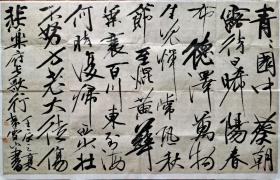 青園中葵朝
露待日晞陽春
布德澤萬物
生光輝常恐秋
節至焜黄華
葉衰百川東到海
何時復西歸少壮
不努力老大徒傷
悲樂府長歌行